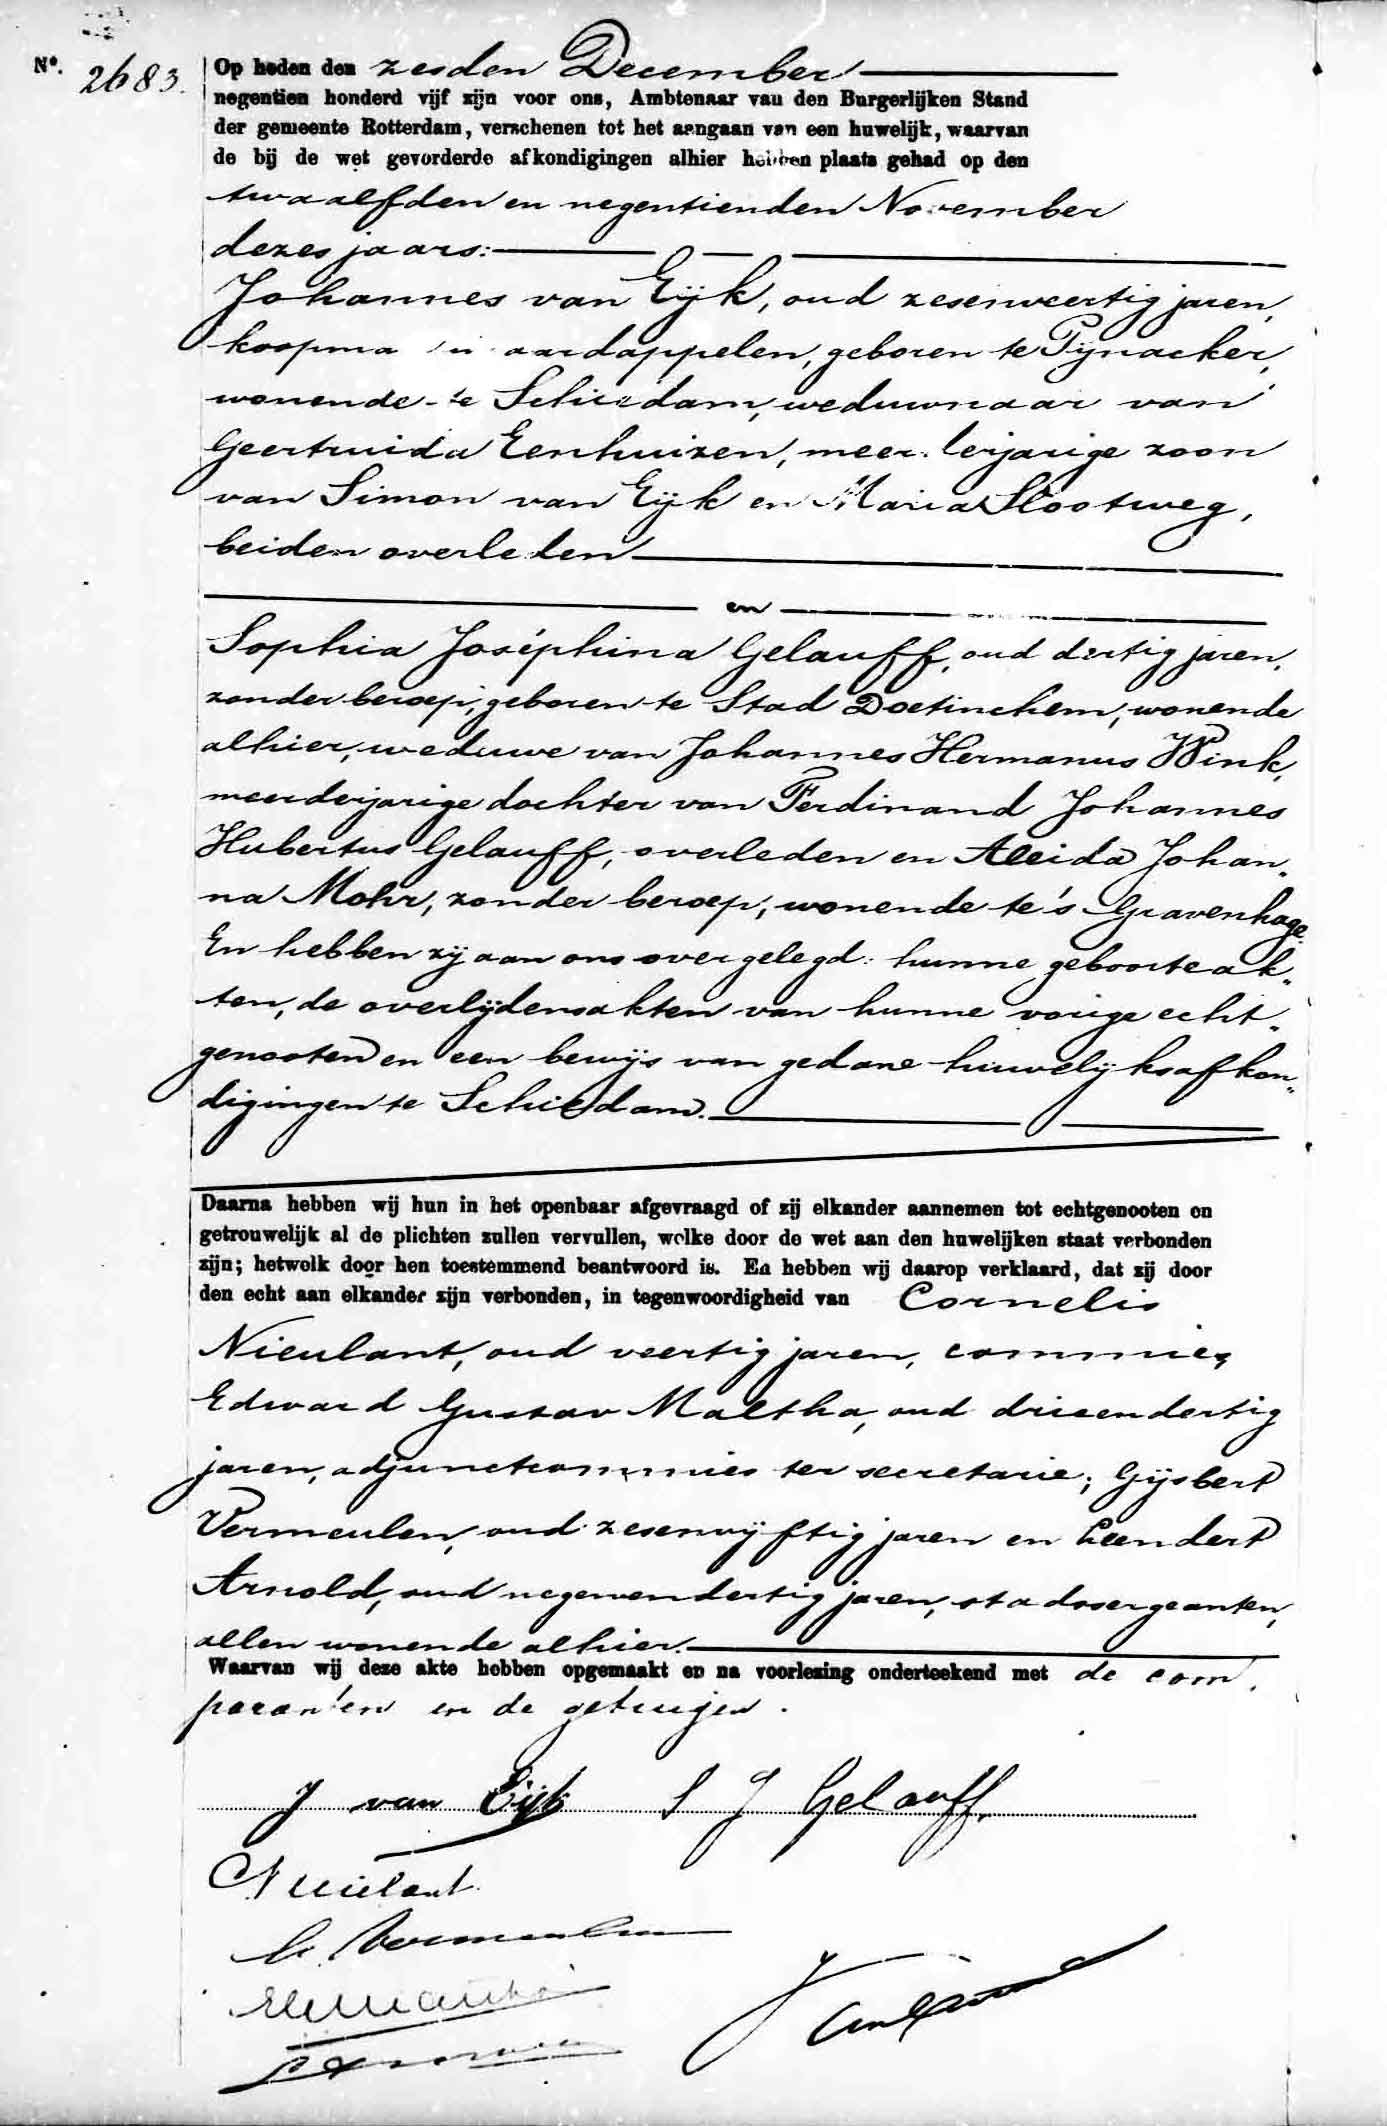 Nº. 2683. Op heden den zesden December
negentien honderd vijf zijn voor ons, Ambtenaar van den Burgerlijken Stand
der gemeente Rotterdam, verschenen tot het aangaan van een huwelijk, waarvan
de bij de wet gevorderde afkondigingen alhier hebben plaats gehad op den
twaalfden en negentienden November
dezes jaars:
Johannes van Eijk, oud zesenveertig jaren,
koopman in aardappelen, geboren te Pijnacker,
wonende te Schiedam, weduwnaar van
Geertruida Eenhuizen, meerderjarige zoon
van Simon van Eijk en Maria Slootweg,
beiden overleden
en
Sophia Joséphina Gelauff, oud dertig jaren,
zonder beroep, geboren te Stad Doetinchem, wonende
alhier, weduwe van Johannes Hermanus Wink,
meerderjarige dochter van Ferdinand Johannes
Hubertus Gelauff, overleden en Aleida Johan„
na Mohr, zonder beroep, wonende te 's Gravenhage.
En hebben zij aan ons overgelegd: hunne geboorteak„
ten, de overlijdensakten van hunne vorige echt„
genooten en een bewijs van gedane huwelijksafkon„
digingen te Schiedam.
Daarna hebben wij hun in het openbaar afgevraagd of zij elkander aannemen tot echtgenooten en
getrouwelijk al de plichten zullen vervullen, welke door de wet aan den huwelijken staat verbonden
zijn; hetwelk door hen toestemmend beantwoord is. En hebben wij daarop verklaard, dat zij door
den echt aan elkander zijn verbonden, in tegenwoordigheid van Cornelis
Nieulant, oud veertig jaren, commies,
Edward Gustav Maltha, oud drieendertig
jaren, adjunctcommies ter secretarie; Gijsbert
Vermeulen, oud zesenvijftig jaren en Leendert
Arnold, oud negenendertig jaren, stadssergeanten,
allen wonende alhier.
Waarvan wij deze akte hebben opgemaakt en na voorlezing onderteekend met de com„
paranten en de getuigen.
J van Eijk S J Gelauff.
C Nieulant
G. Vermeulen
EGMaltha